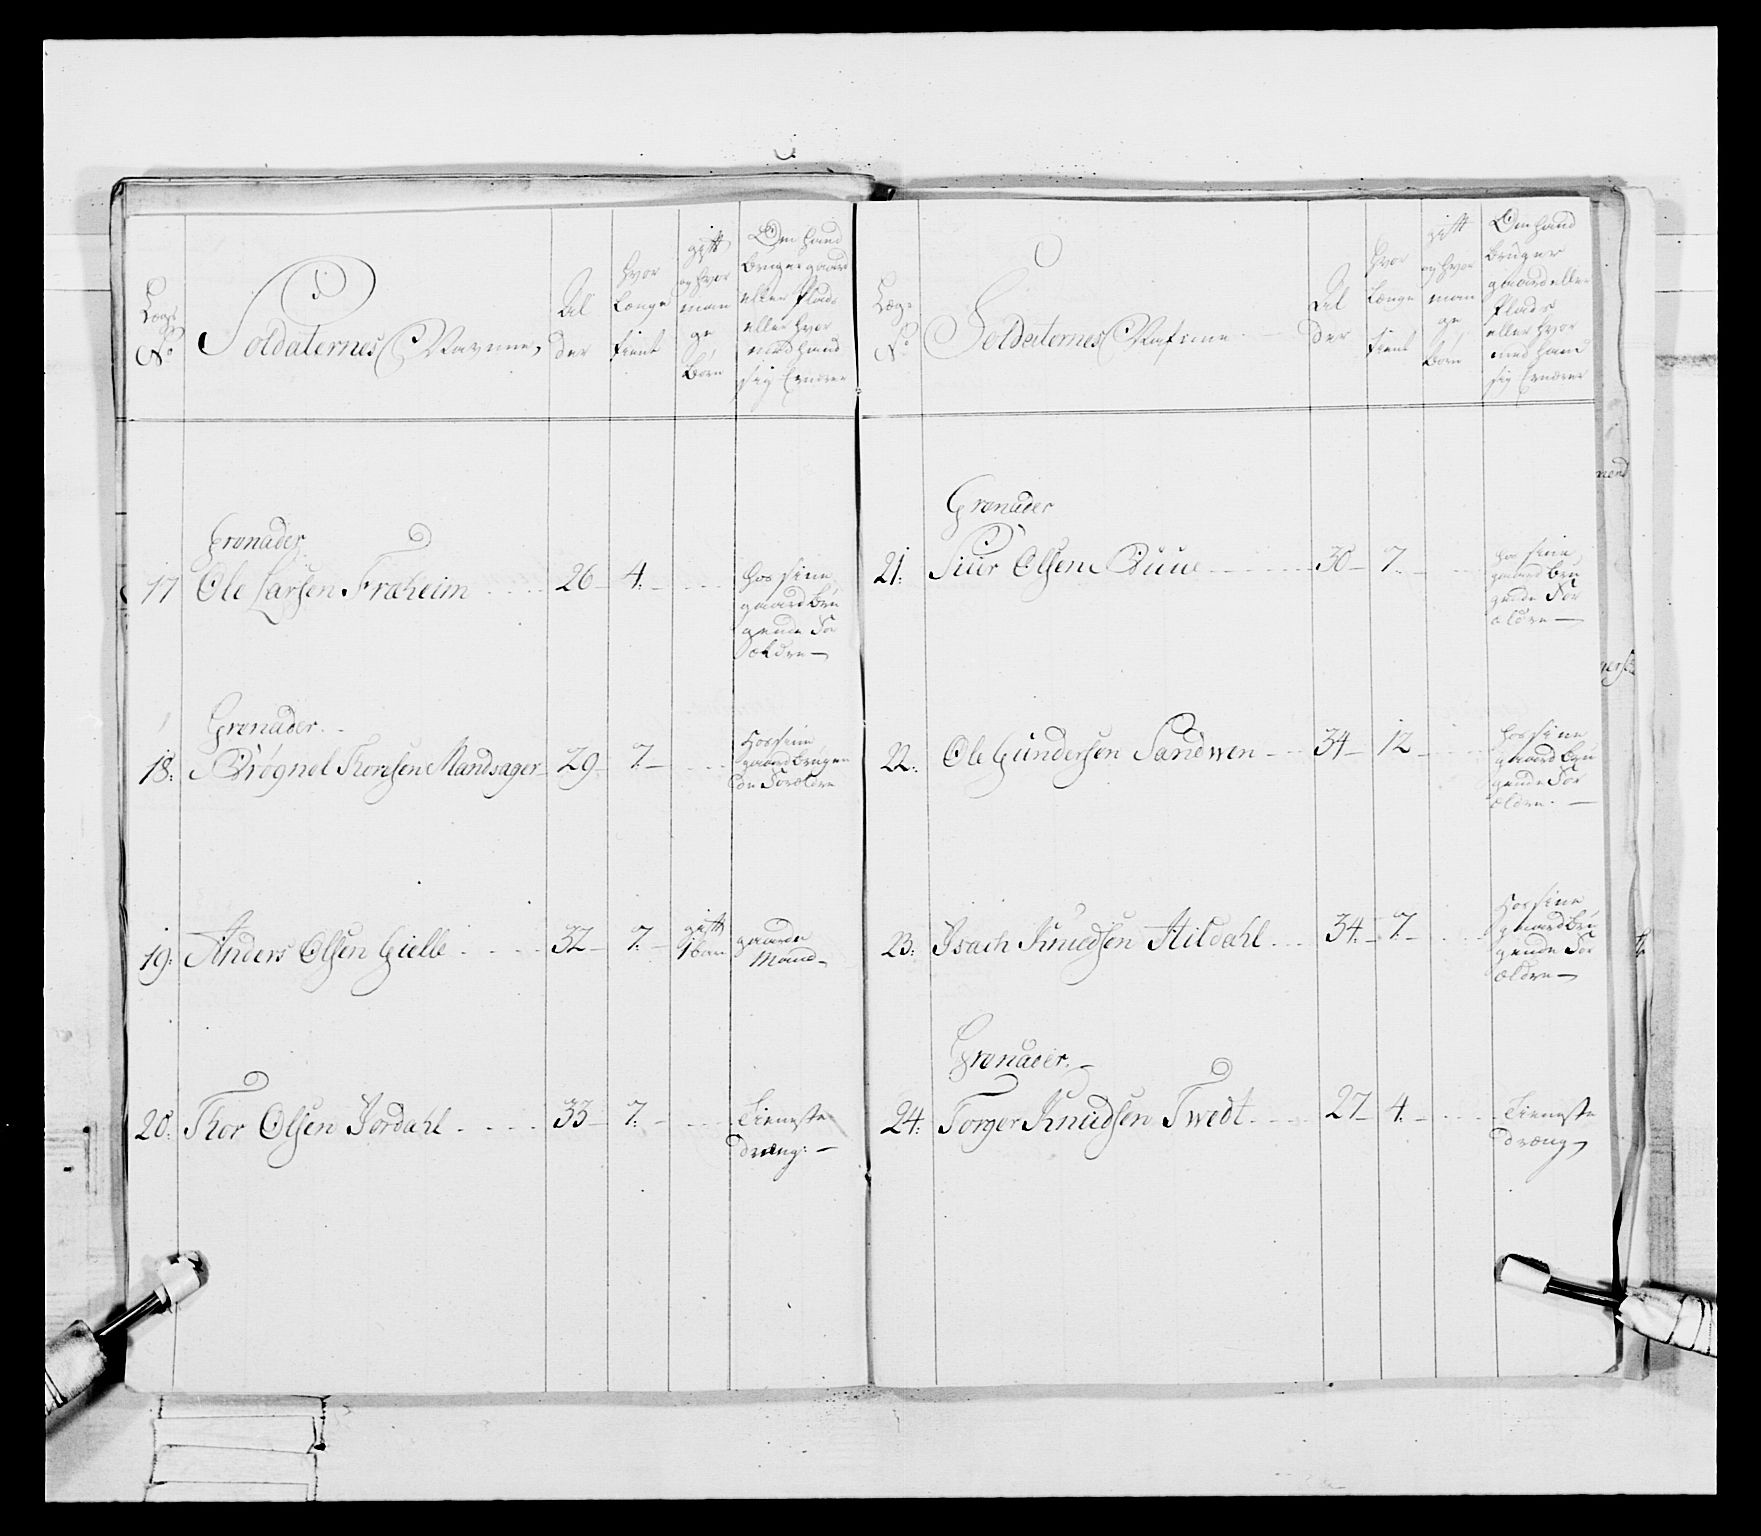 Lægs
No
Soldaternes Navne,
Al
der
hvor
længe
tient
gift
og hvor
man
ge
børn
Om hand
bruger gaard
eller Plads
eller hvor
med hand
sig Ernærer
Grenader
17 Ole Larsen Fræheim 26 4.
hos sine
gaard bru
gende For
ældre
Grenader
18. Brøgnel Thoresen Mandsager 29 7.
hos sine
gaard brugen
de Forældre
19. Anders Olsen Gielle 32 7.
gift
1 barn
gaard
Mand
20. Thor Olsen Jordahl 33 7.
Tieneste
dræng
Læg
No
Soldaternes Nafne
Al
der
hvor
længe
tient
gift
og hvor
man
ge
børn
Om hand
bruger
gaard eller
Plads
eller hvor
med hand
sig Ernærer
Grenader
21. Siur Olsen Buue 30 7.
hos sine
gaard bru
gende For
ældre
22. Ole Gundersen Sandwen 34 12
hos sine
gaard bru
gende For
ældre
23. Isach Knudsen Hildahl 34. 7.
hos sine
gaard bru
gende For
ældre
Grenader
24. Torger Knudsen Twedt 27 4.
Tieneste
dræng